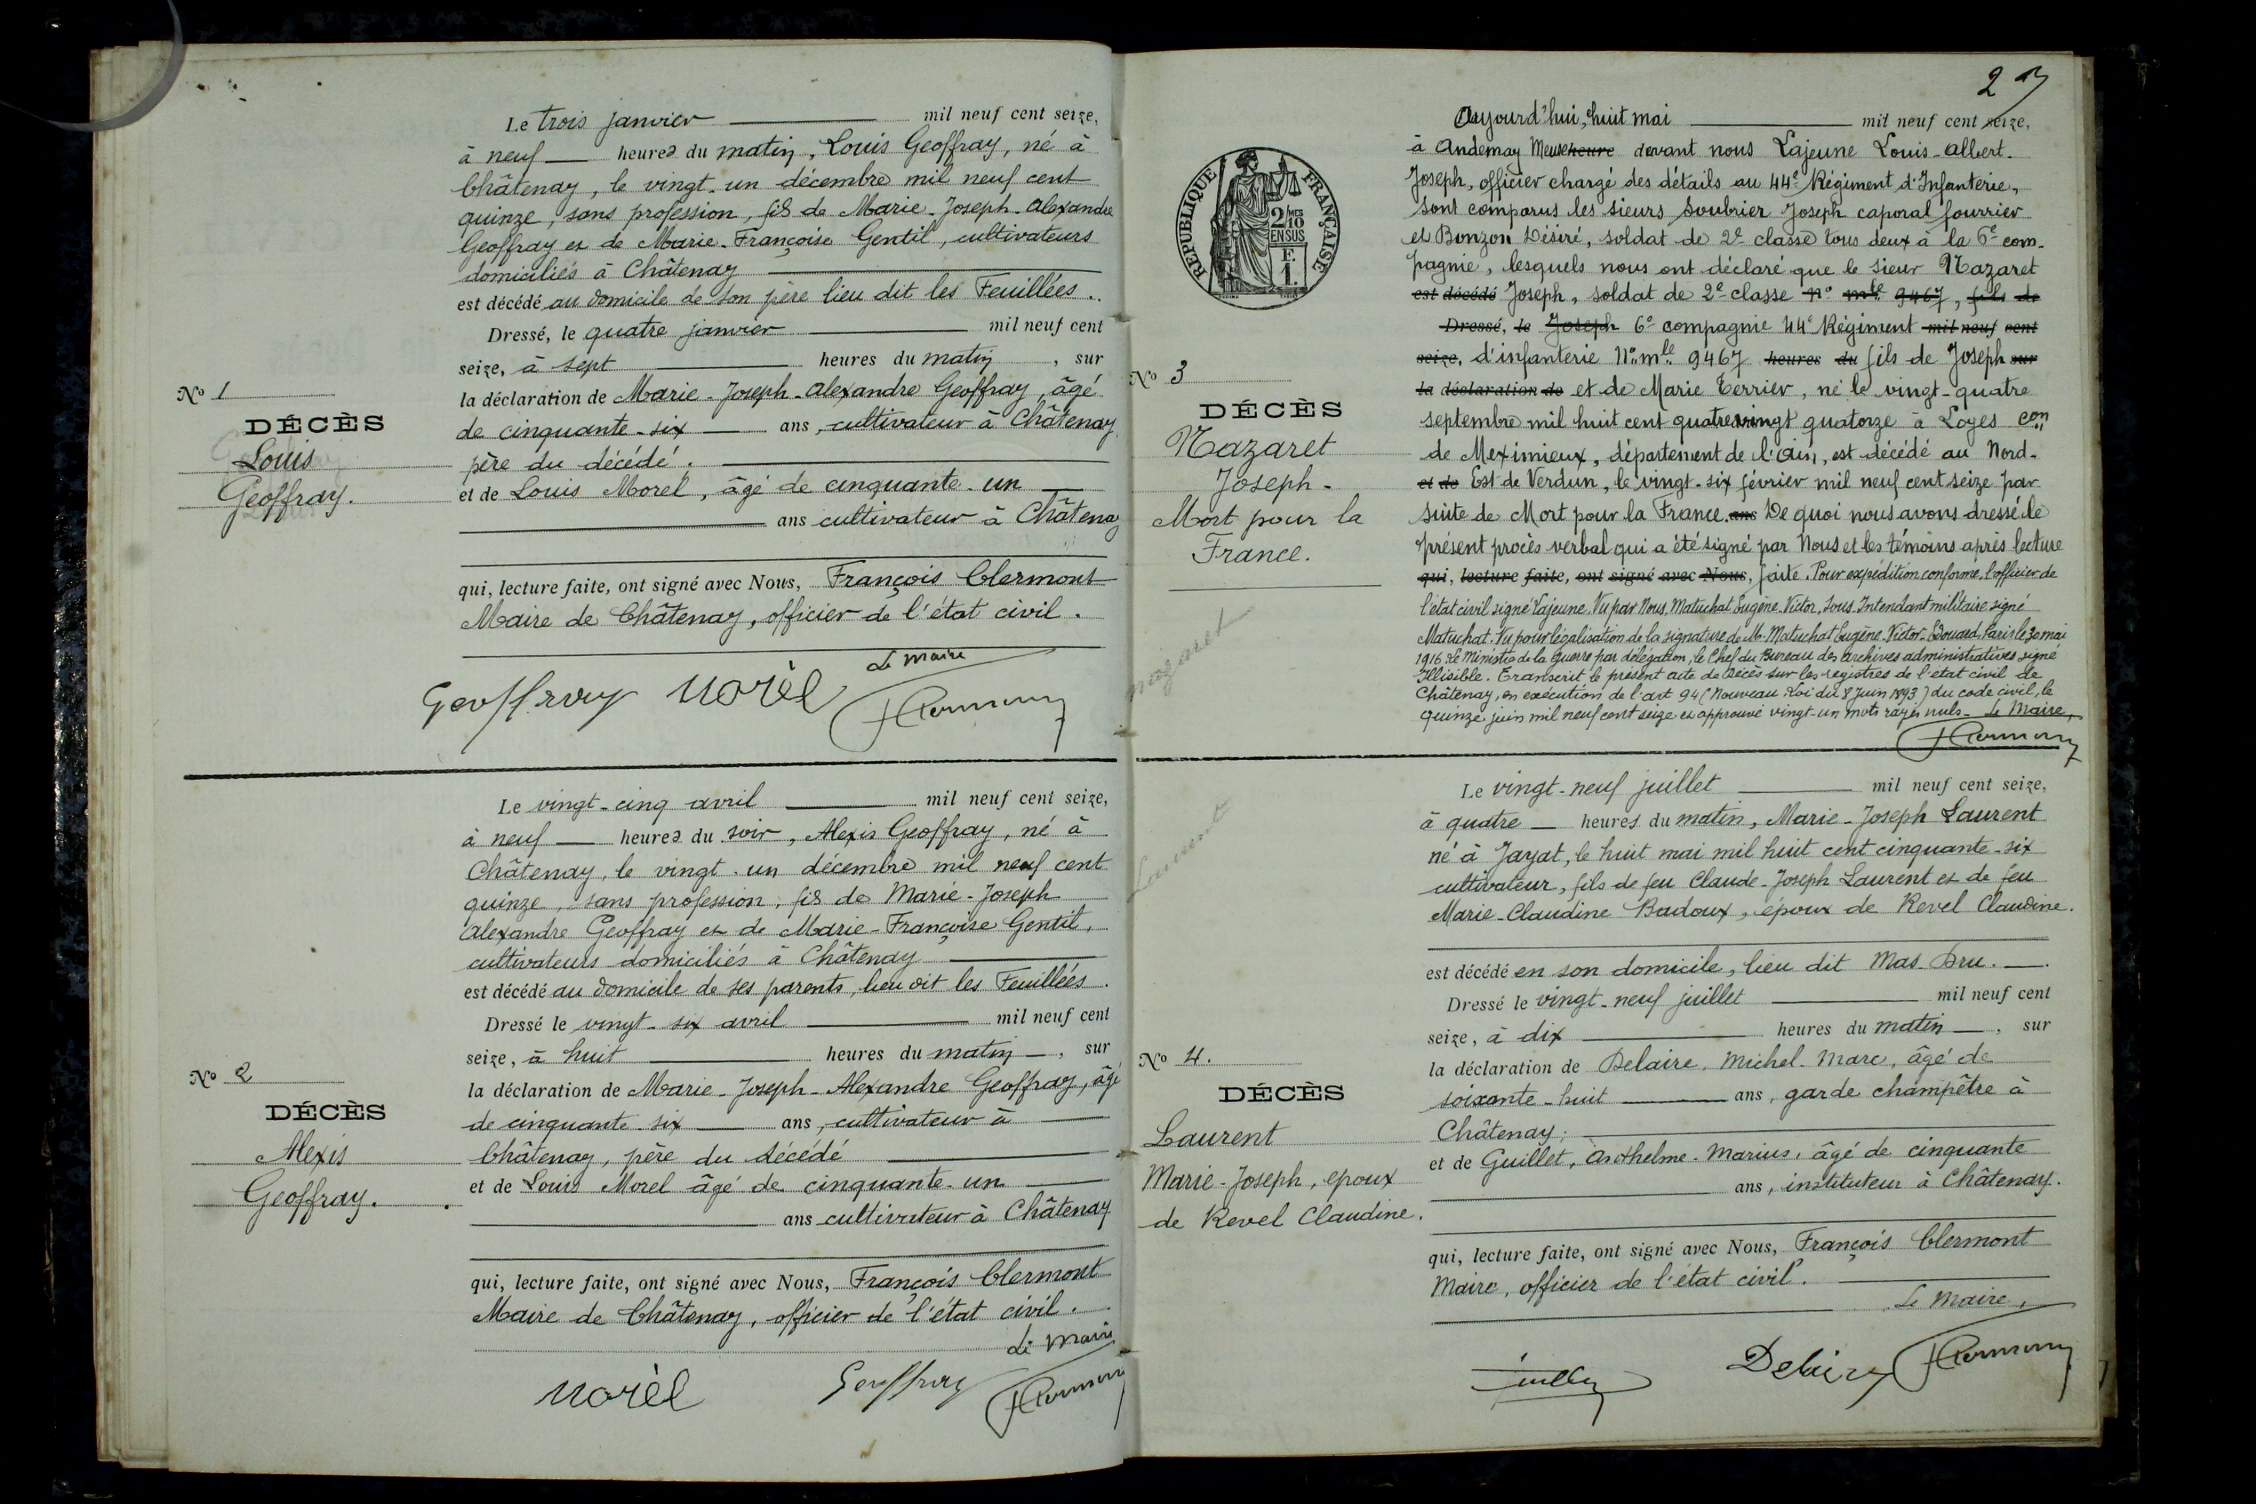 Le trois janvier mil neuf cent seize,
à neuf heures du matin, Louis Geoffray, né à
Châtenay, le vingt-un décembre mil neuf cent
quinze, sans profession, fils de Marie-Joseph-Alexandre
Geoffray et de Marie-Françoise Gentil, cultivateurs
domiciliés à Châtenay
est décédé au domicile de son père lieu dit les Feuillées..
Dressé, le quatre janvier mil neuf cent
seize, à sept heures du matin, sur
la déclaration de Marie-Joseph-Alexandre Geoffray, âgé
de cinquante-six ans, cultivateur à Châtenay
père du décédé.
et de Louis Morel, âgé de cinquante-un
ans cultivateur à Châtenay
qui, lecture faite, ont signé avec Nous, François Clermont
Maire de Châtenay, officier de l'état civil.
Le Maire
Geoffray Morèl FClermont
No 1
DÉCÈS
Louis
Geoffray.
Le vingt-cinq avril mil neuf cent seize,
à neuf heures du soir, Alexis Geoffray, né à
Châtenay, le vingt-un décembre mil neuf cent
quinze, sans profession, fils de Marie-Joseph
Alexandre Geoffray et de Marie-Françoise Gentil,
cultivateurs domiciliés à Châtenay
est décédé au domicile de ses parents, lieu dit les Feuillées.
Dressé le vingt-six avril mil neuf cent
seize, à huit heures du matin, sur
la déclaration de Marie-Joseph-Alexandre Geoffray, âgé
de cinquante-six ans, cultivateur à
Châtenay, père du décédé
et de Louis Morel âgé de cinquante-un
ans cultivateur à Châtenay
qui, lecture faite, ont signé avec Nous, François Clermont
Maire de Châtenay, officier de l'état civil.
Le Maire
Morèl Geoffray FClermont
No 2
DÉCÈS
Alexis
Geoffray.
2
RÉPUBLIQUE FRANÇAISE
2/10 MES
EN SUS
F.
1.
Aujourd'hui, huit mai mil neuf cent seize,
à Andernay Meuse heure devant nous Lajeune Louis-Albert-
Joseph, officier chargé des détails au 44e Régiment d'Infanterie,
sont comparus les sieurs Soubrier Joseph caporal fourrier
et Bonzon Désiré, soldat de 2e classe tous deux à la 6e com-
pagnie, lesquels nous ont déclaré que le sieur Nazaret
est décédé Joseph, soldat de 2e classe No mle 9467, fils de
Dressé, le Joseph 6e compagnie 44e Régiment mil neuf cent
seize, d'infanterie No mle 9467 heures du fils de Joseph sur
la déclaration de et de Marie Terrier, né le vingt-quatre
septembre mil huit cent quatre vingt quatorze à Loyes con
de Meximieux, département de l'Ain, est décédé au Nord-
et de Est de Verdun, le vingt-six février mil neuf cent seize par
suite de Mort pour la France. ans De quoi nous avons dressé le
présent procès verbal qui a été signé par Nous et les témoins après lecture
qui, lecture faite, ont signé avec Nous, faite. Pour expédition conforme, l'officier de
l'état civil signé Lajeune. Vu par Nous, Matuchat Eugène-Victor, Sous-Intendant militaire signé
Matuchat. Vu pour légalisation de la signature de M. Matuchat Eugène-Victor-Edouard, Paris le 30 mai
1916. Le Ministre de la guerre par délégation, le Chef du Bureau des archives administratives signé
Illisible. Transcrit le présent acte de décès sur les registres de l'état civil de
Châtenay, en exécution de l'art 94 (Nouveau Loi du 8 Juin 1893) du code civil, le
quinze juin mil neuf cent seize et approuvé vingt-un mots rayés nuls. Le Maire,
FClermont
No 3
DÉCÈS
Nazaret
Joseph-
Mort pour la
France.
Nazaret
Laurent
Le vingt-neuf juillet mil neuf cent seize,
à quatre heures du matin, Marie-Joseph Laurent
né à Jayat, le huit mai mil huit cent cinquante-six
cultivateur, fils de feu Claude-Joseph Laurent et de feu
Marie-Claudine Badoux, époux de Revel Claudine.
est décédé en son domicile, lieu dit Mas Dru.
Dressé le vingt-neuf juillet mil neuf cent
seize, à dix heures du matin, sur
la déclaration de Delaire, Michel-Marc, âgé de
soixante-huit ans, garde champêtre à
Châtenay;
et de Guillet, Anthelme-Marius, âgé de cinquante
ans, instituteur à Châtenay.
qui, lecture faite, ont signé avec Nous, François Clermont
Maire, officier de l'état civil.
Le Maire,
Guillet Delaire FClermont
No 4.
DÉCÈS
Laurent
Marie-Joseph, epoux
de Revel Claudine.